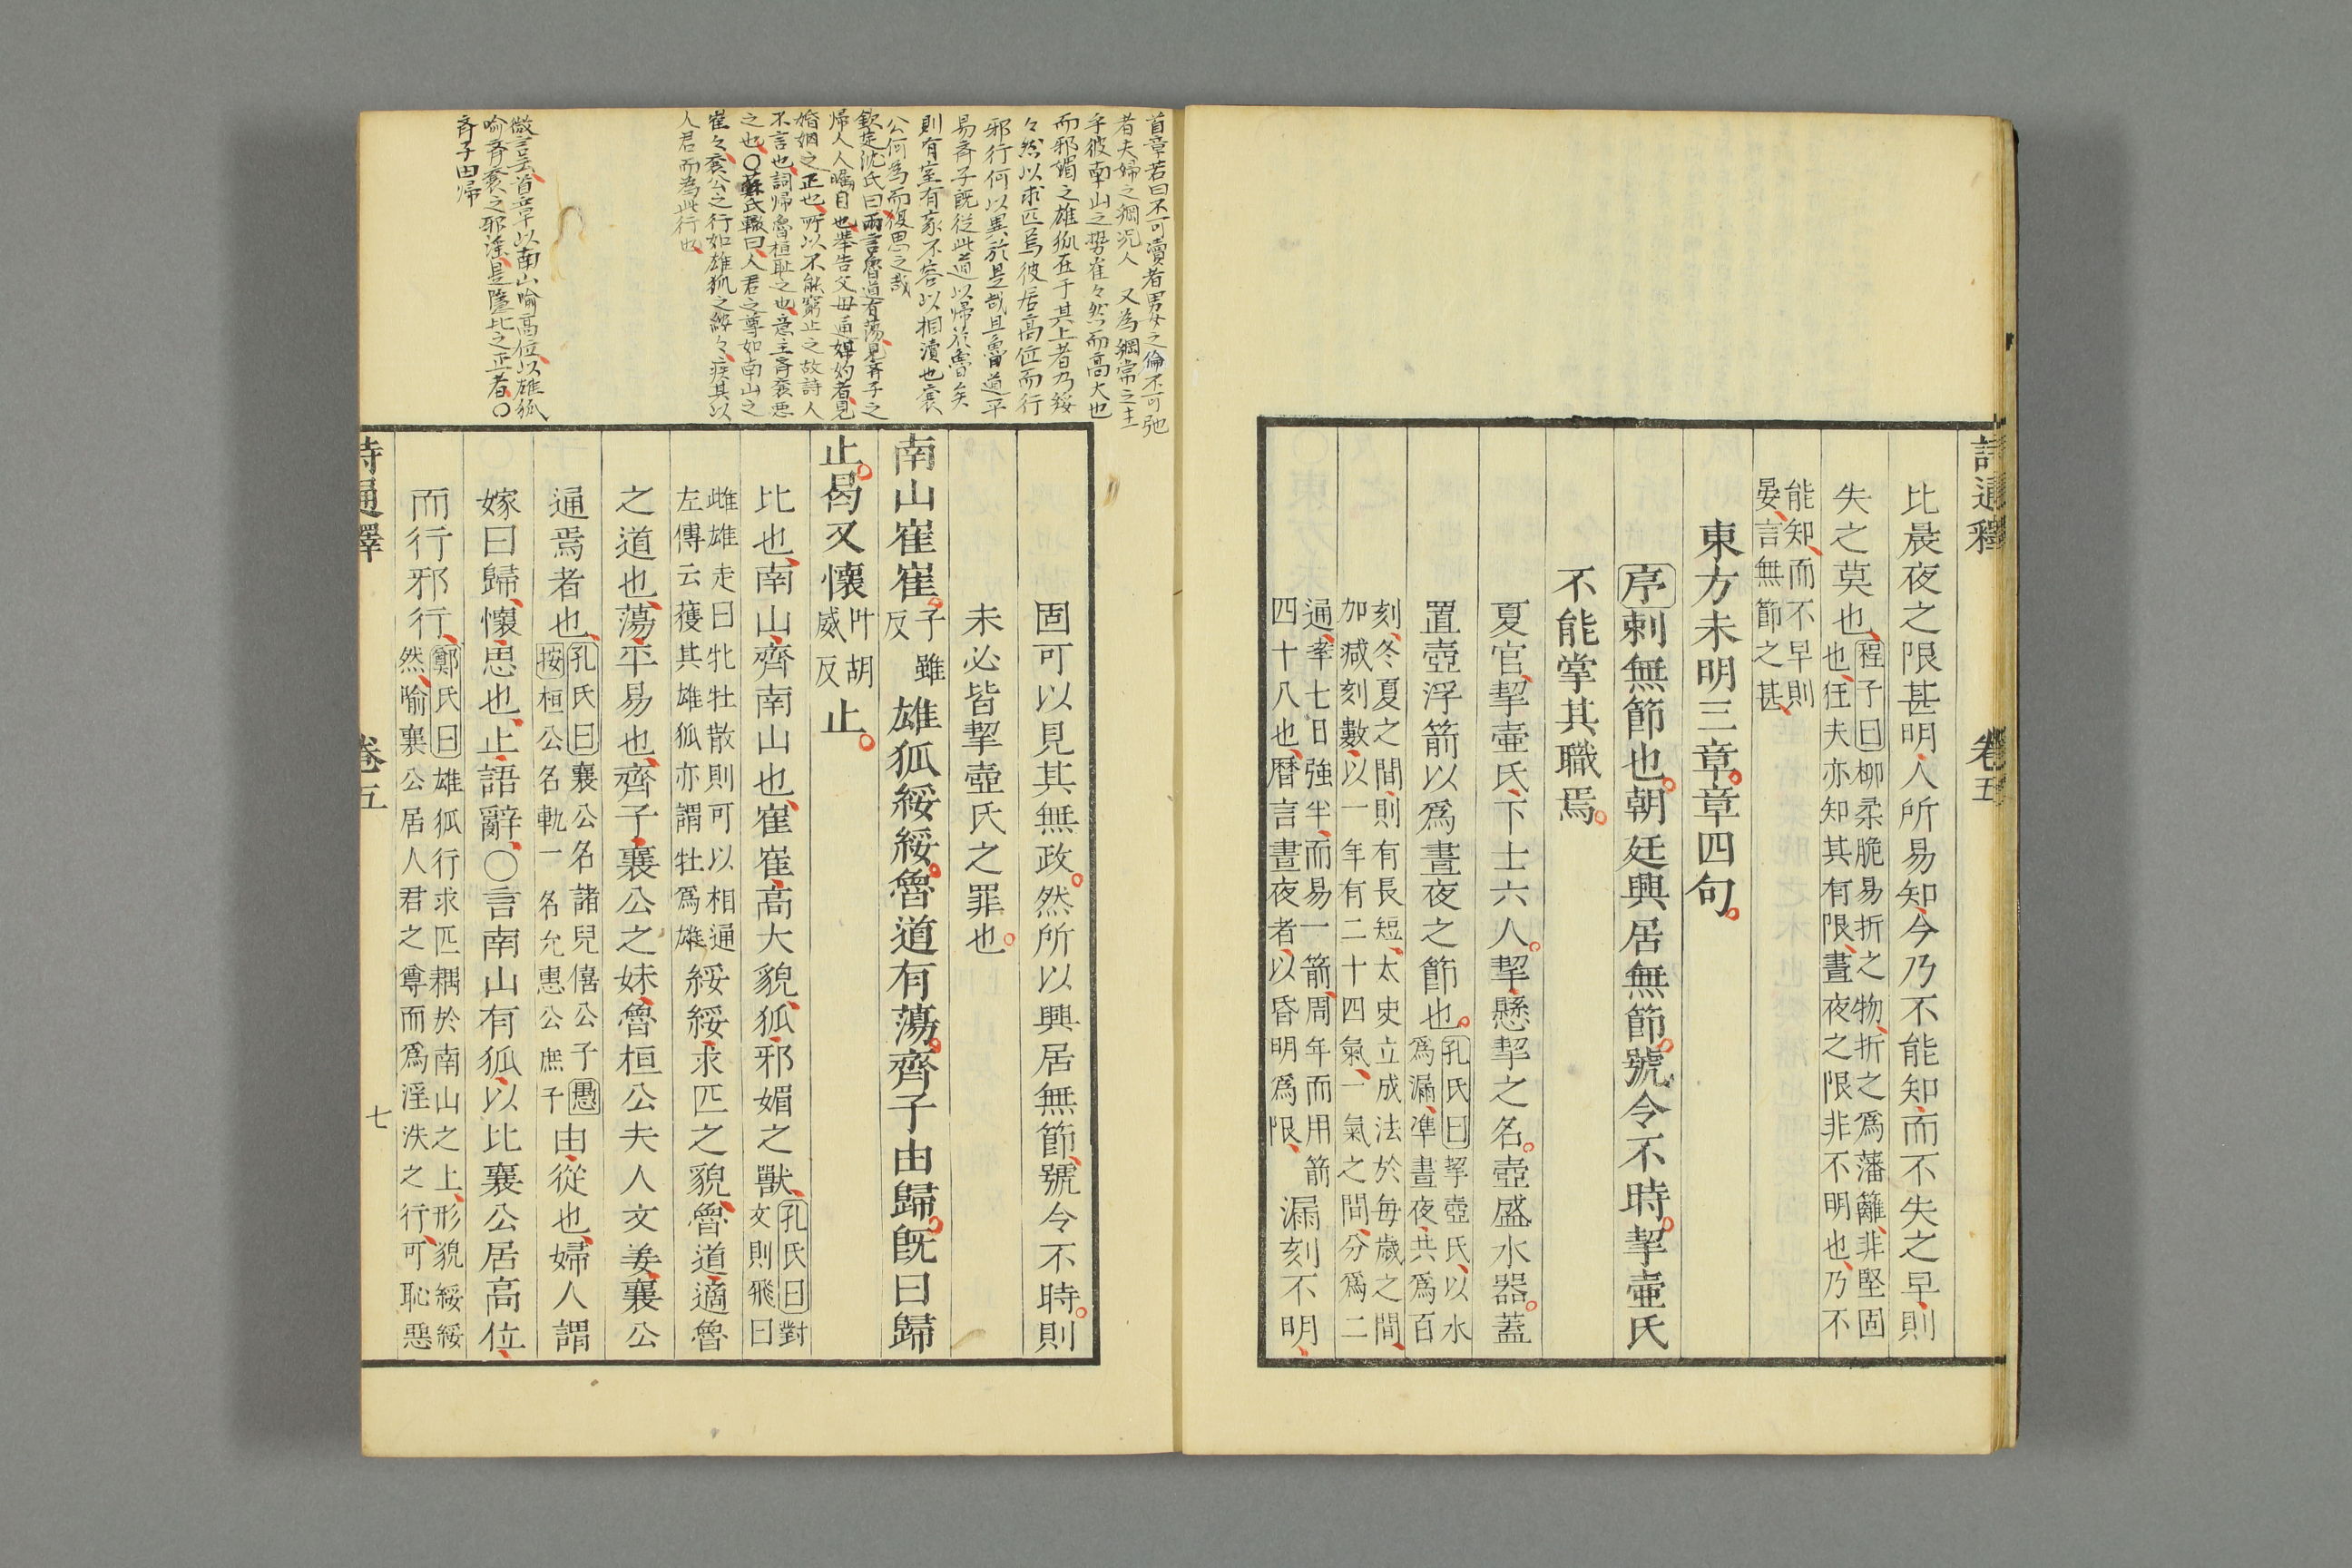 詩通釋
卷五
比晨夜之限甚明人所易知今乃不能知而不失之早則
失之莫也
程子曰柳柔脆易折之物折之爲藩籬非堅固
也狂夫亦知其有限晝夜之限非不明也乃不
能知而不早則
晏言無節之甚
東方未明三章章四句
序刺無節也朝廷興居無節號令不時挈壷氏
不能掌其職焉
夏官挈壷氏下士六人挈懸挈之名壺盛水器蓋
置壺浮箭以爲晝夜之節也
孔氏曰挈壺氏以水
爲漏準晝夜共爲百
刻冬夏之間則有長短太史立成法於每歲之間
加減刻數以一年有二十四氣一氣之間分爲二
通率七日強半而易一箭周年而用箭
四十八也曆言晝夜者以昏明爲限
漏刻不明
固可以見其無政然所以興居無節號令不時則
未必皆挈壺氏之罪也
南山崔崔
子雖
反
雄狐綏綏魯道有蕩齊子由歸旣曰歸
止曷又懷
叶胡
威反
止
比也南山齊南山也崔崔高大貌狐邪媚之獸
孔氏曰對
文則飛曰
雌雄走曰牝牡散則可以相通
左傳云獲其雄狐亦謂牡爲雄
綏綏求匹之貌魯道適魯
之道也蕩平易也齊子襄公之妹魯桓公夫人文姜襄公
通焉者也
孔氏曰襄公名諸兒僖公子愚
按桓公名軌一名允惠公庶子
由從也婦人謂
嫁曰歸懷思也止語辭○言南山有狐以比襄公居高位
而行邪行
鄭氏曰雄狐行求匹耦於南山之上形貌綏綏
然喻襄公居人君之尊而爲淫泆之行可恥惡
詩通釋
卷五
七
首章若曰不可瀆者男女之倫不可弛
者夫婦之綱況人 又為綱常之主
乎彼南山之勢崔々然而高大也
而邪媚之雄狐在于其上者乃綏
々然以求匹焉彼居高位而行
邪行何以異於是哉且魯道平
易齊子既從此道以歸於魯矣
則有室有家不容以相瀆也襄
公何為而復思之哉
欽定沈氏曰兩言魯道有蕩見齊子之
歸人人矚目也舉告父母通媒妁者見
婚姻之正也所以不能窮止之故詩人
不言也詞歸魯桓恥之也意主齊襄惡
之也○蘇氏轍曰人君之尊如南山之
崔々襄公之行如雄狐之綏々疾其以
人君而為此行也
微言云首章以南山喻高位以雄狐
喻齊襄之邪淫是隱比之正者○
齊子由歸